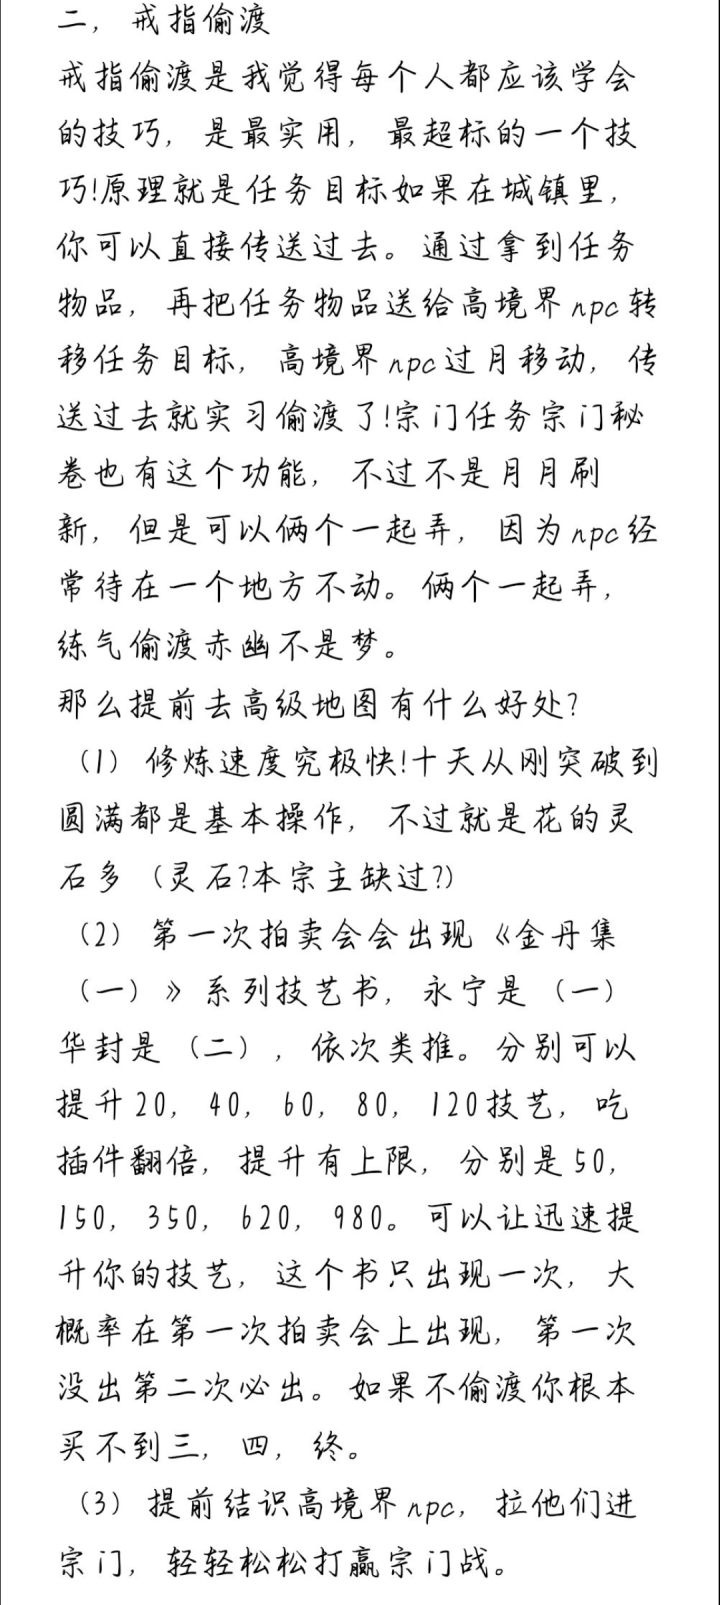 二，戒指偷渡
戒指偷渡是我觉得每个人都应该学会
的技巧，是最实用，最超标的一个技
巧!原理就是任务目标如果在城镇里，
你可以直接传送过去。通过拿到任务
物品，再把任务物品送给高境界npc转
移任务目标，高境界npc过月移动，传
送过去就实习偷渡了!宗门任务宗门秘
卷也有这个功能，不过不是月月刷
新，但是可以俩个一起弄，因为npc经
常待在一个地方不动。俩个一起弄，
练气偷渡赤幽不是梦。
那么提前去高级地图有什么好处?
（1）修炼速度究极快!十天从刚突破到
圆满都是基本操作，不过就是花的灵
石多（灵石?本宗主缺过?）
（2）第一次拍卖会会出现《金丹集
（一）》系列技艺书，永宁是（一）
华封是（二），依次类推。分别可以
提升20，40，60，80，120技艺，吃
插件翻倍，提升有上限，分别是50，
150，350，620，980。可以让迅速提
升你的技艺，这个书只出现一次，大
概率在第一次拍卖会上出现，第一次
没出第二次必出。如果不偷渡你根本
买不到三，四，终。
（3）提前结识高境界npc，拉他们进
宗门，轻轻松松打赢宗门战。